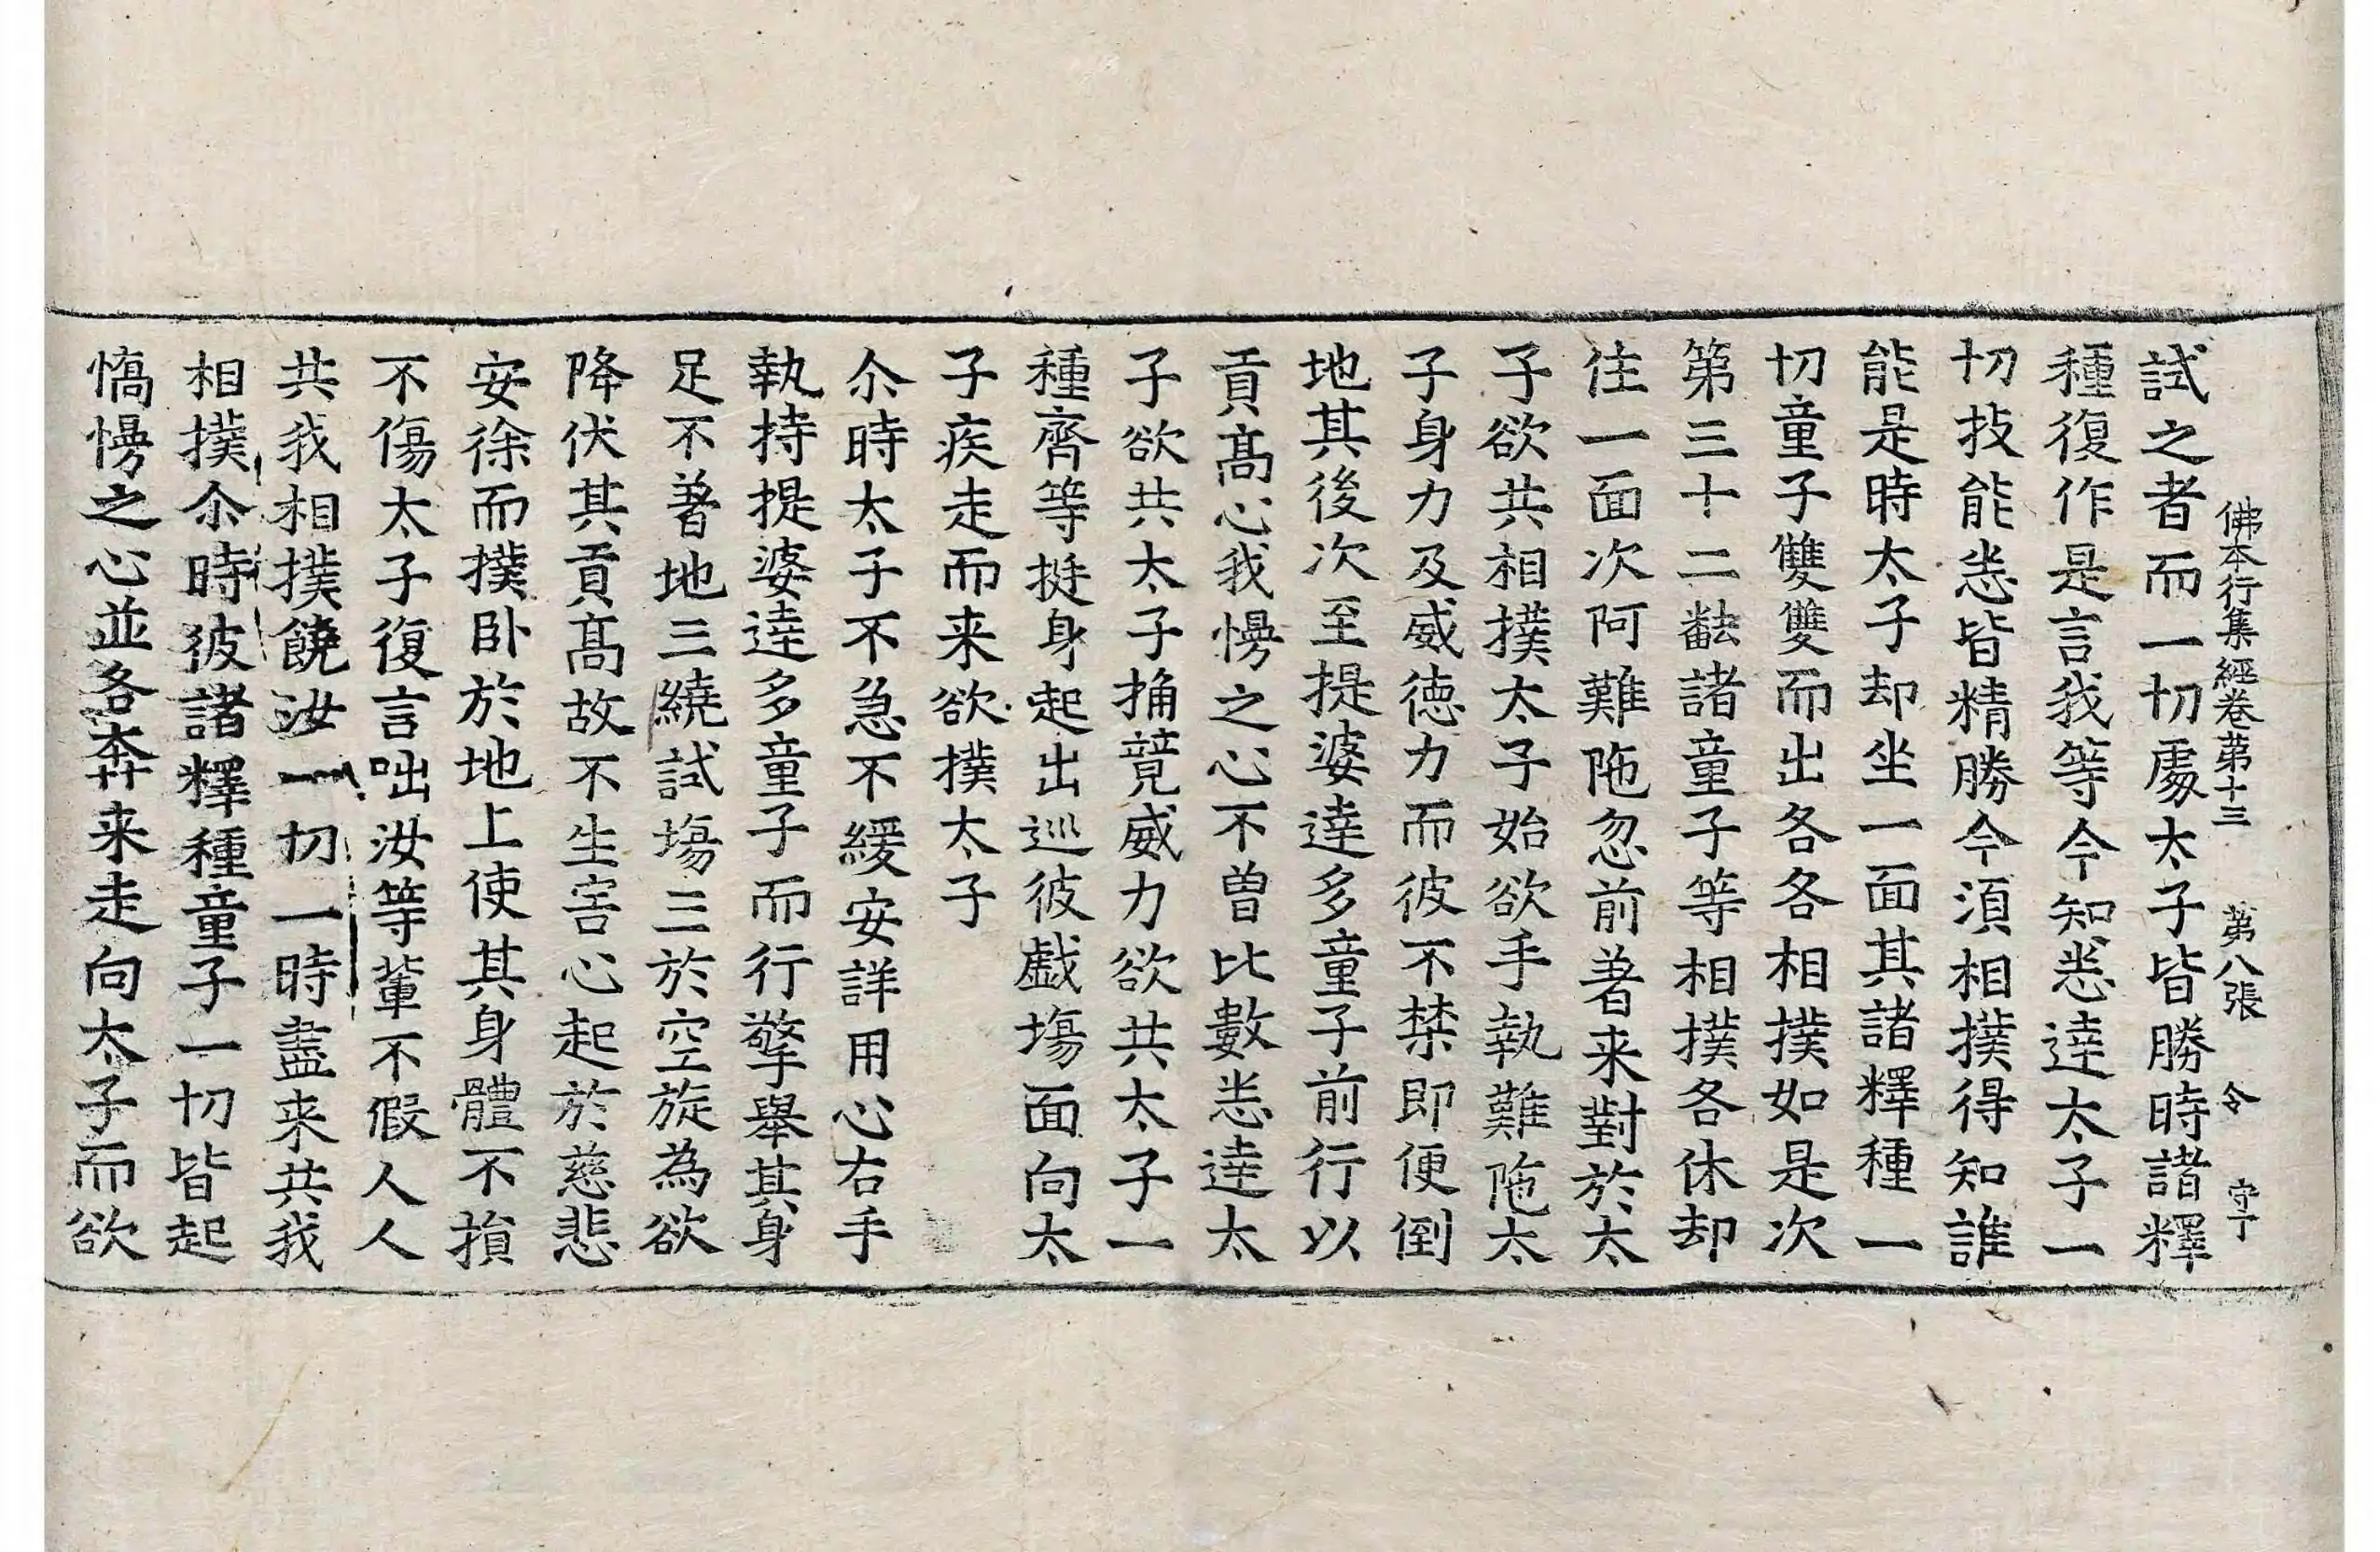 佛本行集經卷第十三　第八張　令　守丁
試之者而一切處太子皆勝時諸釋
種復作是言我等今知悉達太子一
切技能悉皆精勝今須相撲得知誰
能是時太子却坐一面其諸釋種一
切童子雙雙而出各各相撲如是次
第三十二翻諸童子等相撲各休却
住一面次阿難陁忽前著来對於太
子欲共相撲太子始欲手執難陁太
子身力及威德力而彼不禁即便倒
地其後次至提婆達多童子前行以
貢髙心我慢之心不曾比數悉達太
子欲共太子捔競威力欲共太子一
種齊等挺身起出巡彼戲塲面向太
子疾走而来欲撲太子
尒時太子不急不緩安詳用心右手
執持提婆達多童子而行擎舉其身
足不著地三繞試塲三於空旋為欲
降伏其貢髙故不生害心起於慈悲
安徐而撲卧於地上使其身體不損
不傷太子復言咄汝等輩不假人人
共我相撲饒汝一切一時盡来共我
相撲尒時彼諸釋種童子一切皆起
憍慢之心並各奔来走向太子而欲